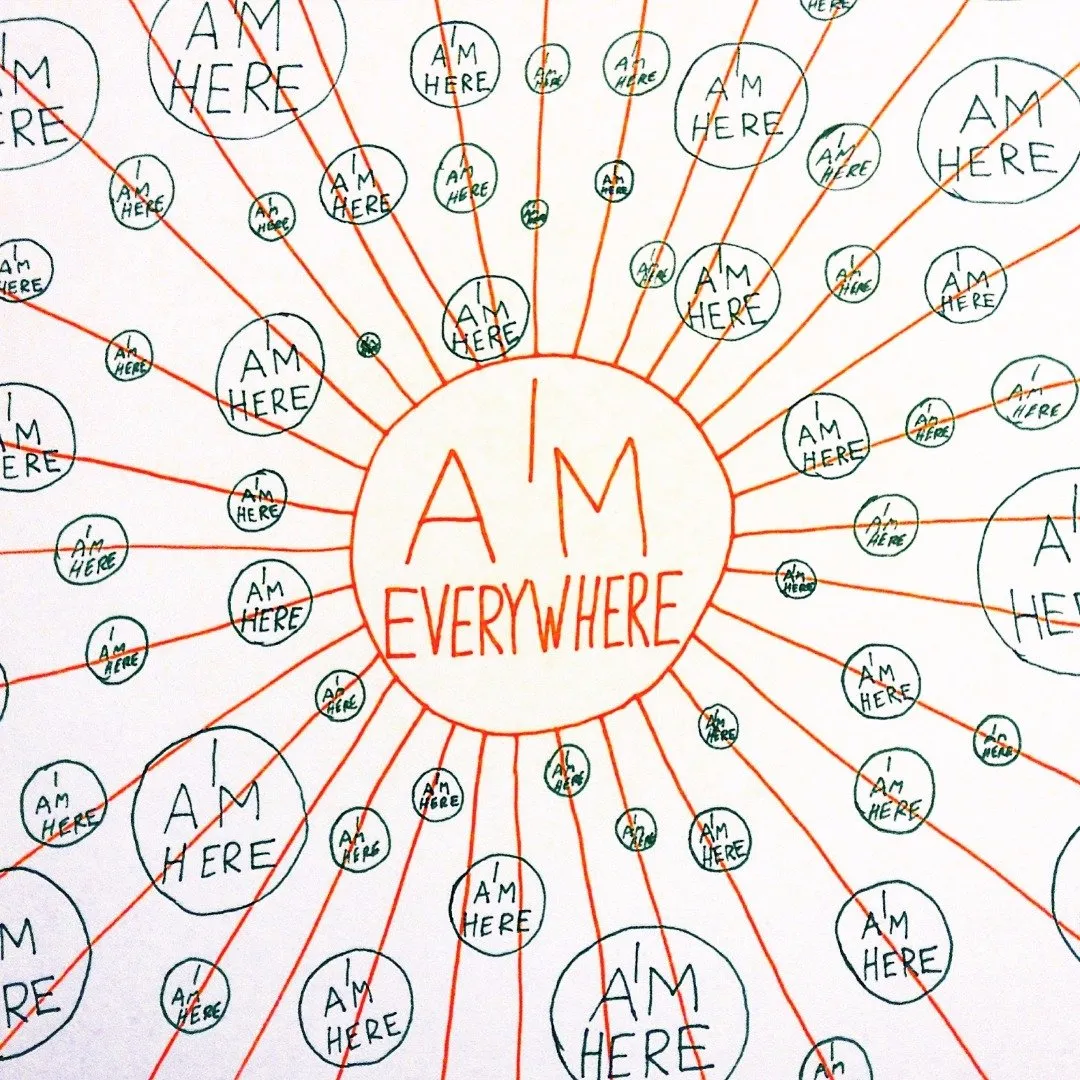 HERE
I
AM
HERE
I
M
ERE
I
AM
HERE
I
AM
HERE
I
AM
HERE
I
AM
HERE
I
AM
HERE
I
AM
HERE
I
AM
HERE
I
AM
HERE
I
AM
HERE
I
AM
HERE
I
AM
HERE
I
AM
HERE
I
AM
HERE
I
AM
HERE
I
AM
HERE
I
AM
HERE
I
AM
HERE
I
AM
HERE
I
AM
HERE
I
AM
HERE
I
AM
HERE
I
AM
HERE
I
AM
HERE
I
M
ERE
I
AM
EVERYWHERE
I
AM
HERE
I
AM
HERE
I
AM
HERE
I
A
HE
I
AM
HERE
I
AM
HERE
I
AM
HERE
I
AM
HERE
I
AM
HERE
I
AM
HERE
I
AM
HERE
I
AM
HERE
I
AM
HERE
I
AM
HERE
I
AM
HERE
I
AM
HERE
I
AM
HERE
I
AM
HERE
I
AM
HERE
I
AM
HERE
I
AM
HERE
M
RE
I
AM
HERE
I
AM
HERE
I
AM
HERE
I
AM